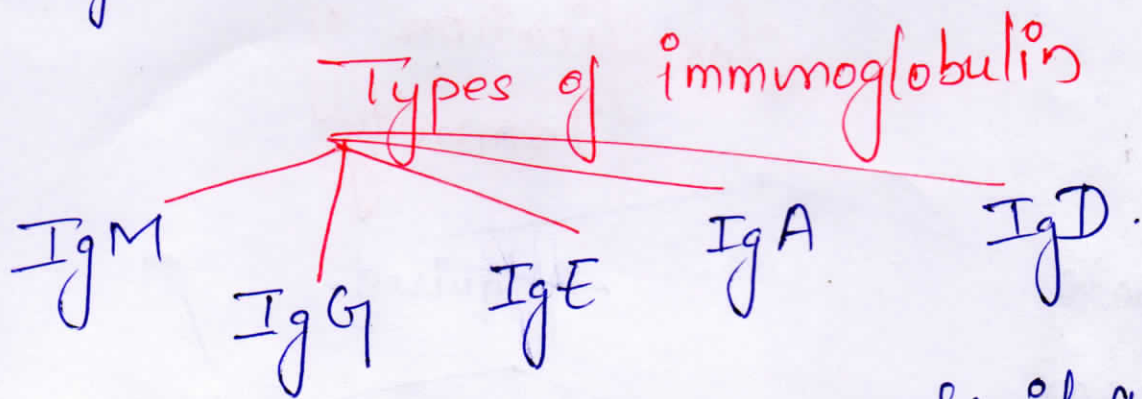 Types of immunoglobulin
IgM IgG IgE IgA IgD.